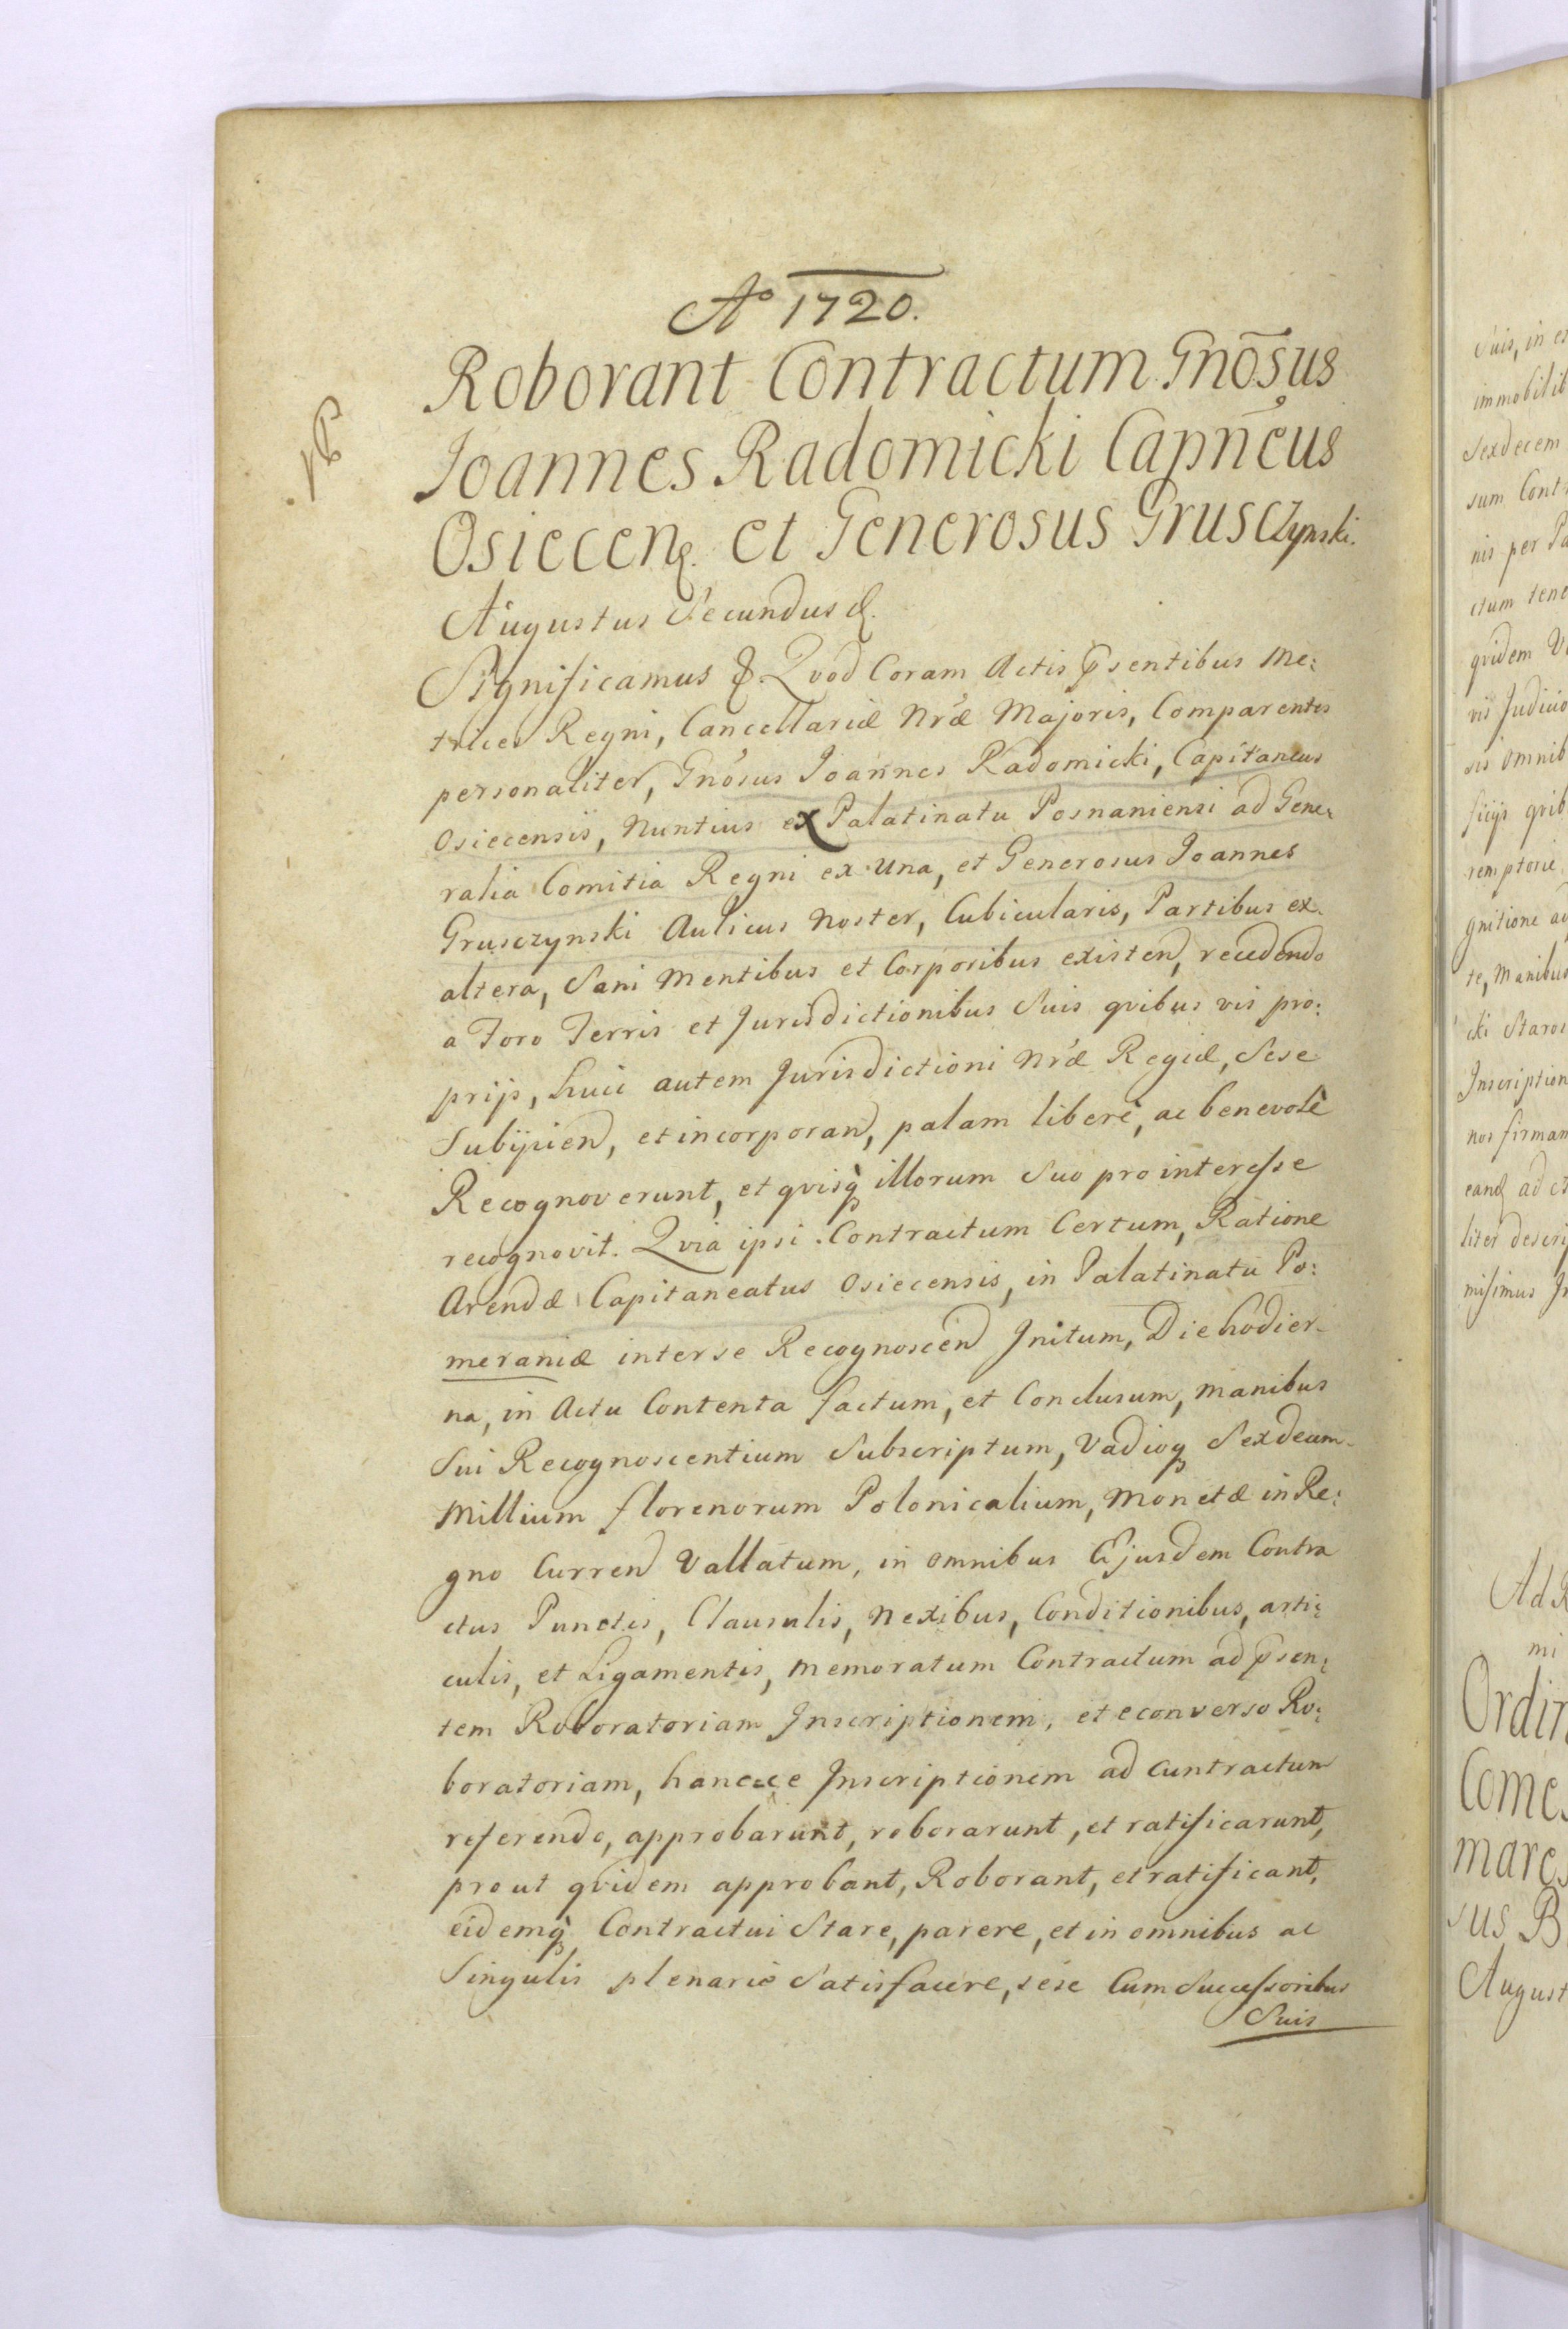 Ao 1720.
Roborant Contractum Gnōsus
Joannes Radomicki Capn̄eus
Osiecen. et Generosus Grusczynski.
Augustus Secundus &.
Significamus &. Qvod Coram Actis Psentibus Me:
trices Regni, Cancellariæ Nræ Majoris, Comparentes
personaliter, Gnosus Joannes Radomicki, Capitaneus
Osiecensis, Nuntius ex Palatinatu Posnaniensi ad Gene:
ralia Comitia Regni ex una, et Generosus Joannes
Grusczynski Aulicus Noster, Cubicularis, Partibus ex
altera, Sani Mentibus et Corporibus existen, recedendo
a Foro Terris et Jurisdictionibus Suis qvibus vis pro:
prijs, huic autem Jurisdictioni Nræ Regiæ, Sese
Subijcien, et incorporan, palam liberè, ac benevolè
Recognoverunt, et qvisq illorum Suo pro interesse
recognovit. Qvia ipsi Contractum Certum, Ratione
Arendæ Capitaneatus Osiecensis, in Palatinatu Po:
meraniæ inter se Recognoscen Jnitum, Die hodier-
na, in Actu Contenta factum, et Conclusum, manibus
Sui Recognoscentium Subscriptum, Vadioq Sexdecim
Millium florenorum Polonicalium, Monetæ in Re:
gno Curren Vallatum, in omnibus Ejusdem Contra
ctus Punctis, Clausulis, Nexibus, Conditionibus, arti:
culis, et Ligamentis, memoratum Contractum ad Psen:
tem Roboratoriam Jnscriptionem, et econverso Ro:
boratoriam, hancce Jnscriptionem ad Cuntractum
referendo, approbarunt, roborarunt, et ratificarunt,
prout qvidem approbant, Roborant, et ratificant,
eidemq Contractui Stare, parere, et in omnibus ac
Singulis plenariè Satisfacere, sese Cum Successoribus
Suis
Suis, in
immobilib
Sexdecem
sum Cont
nis per
ctum tene
qvidem
vis Judicio
sis omnib
ficijs qvib
remptorie
gnitione
te, Manibus
cki Staros
Jnscription
nos firman
ean ad
liter descri
misimus
Ad R
mi
Ordin
Comes
marcs
sus B
August